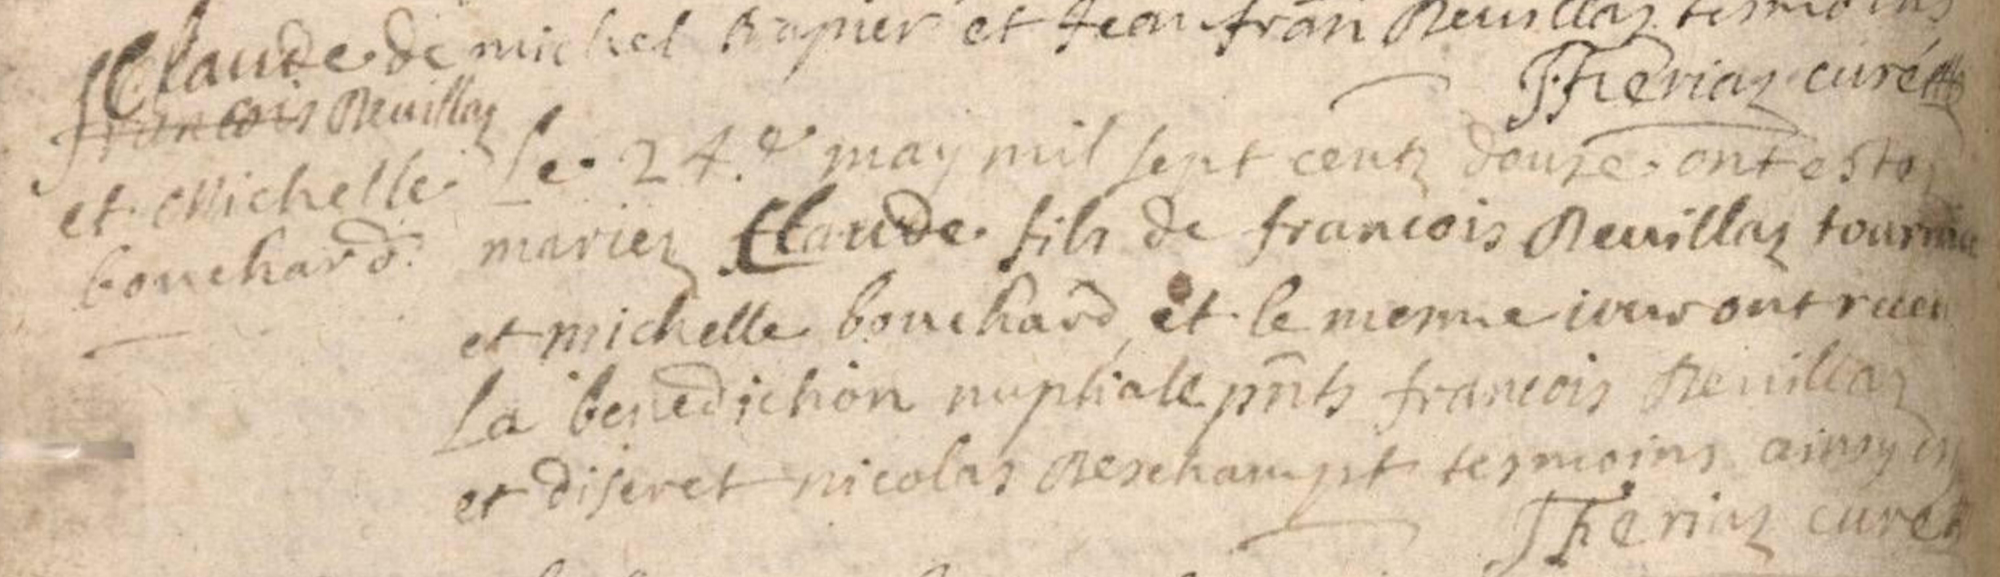 de michel Rapier et Jean fran Revillaz tesmoins
Claude
francois Revillaz
et Michelle
bouchard.
Feriaz curé
Le 24.e may mil sept centz douze ont esto
mariez Claude fils de francois Revillaz
et michelle bouchard, et le mesme iour ont receu
La benediction nuptiale pnts francois Revillaz
et discret nicolas Deschampt tesmoins ainsy
Feriaz curé